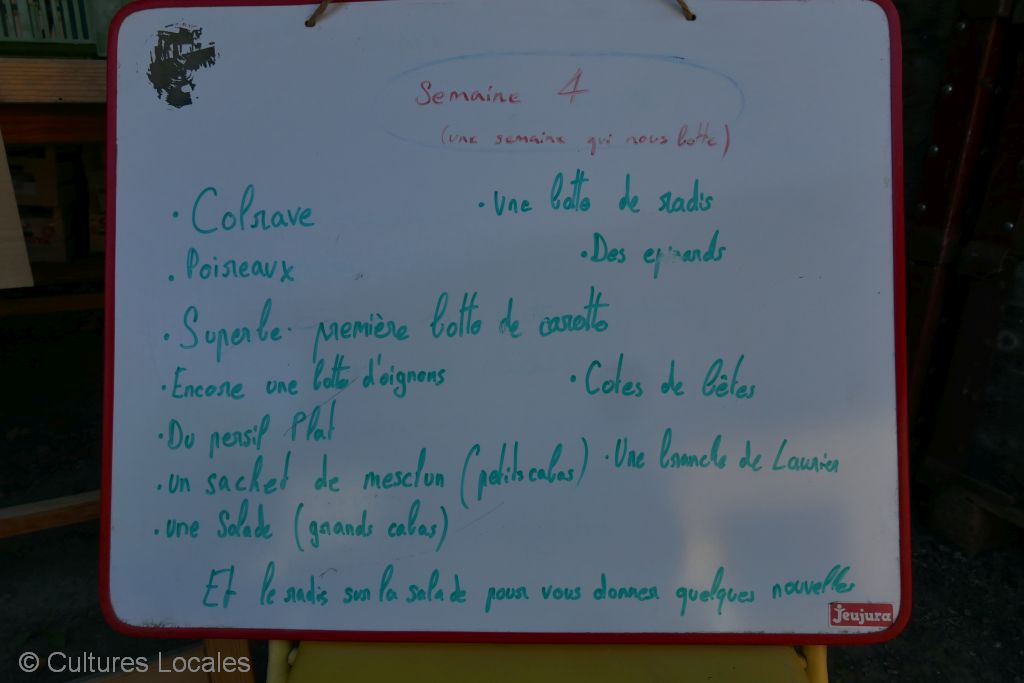 Semaine 4
(une semaine qui nous botte)
• Colrave
• Une botte de radis
• Poireaux
• Des epinards
• Superbe première botte de carotte
• Encore une botte d'oignons
• Cotes de bêtes
• Du persil Plat
• un sachet de mesclun (petits cabas)
• Une branche de Laurier
• une Salade (grands cabas)
Et le radis sur la salade pour vous donner quelques nouvelles
Jeujura
© Cultures Locales